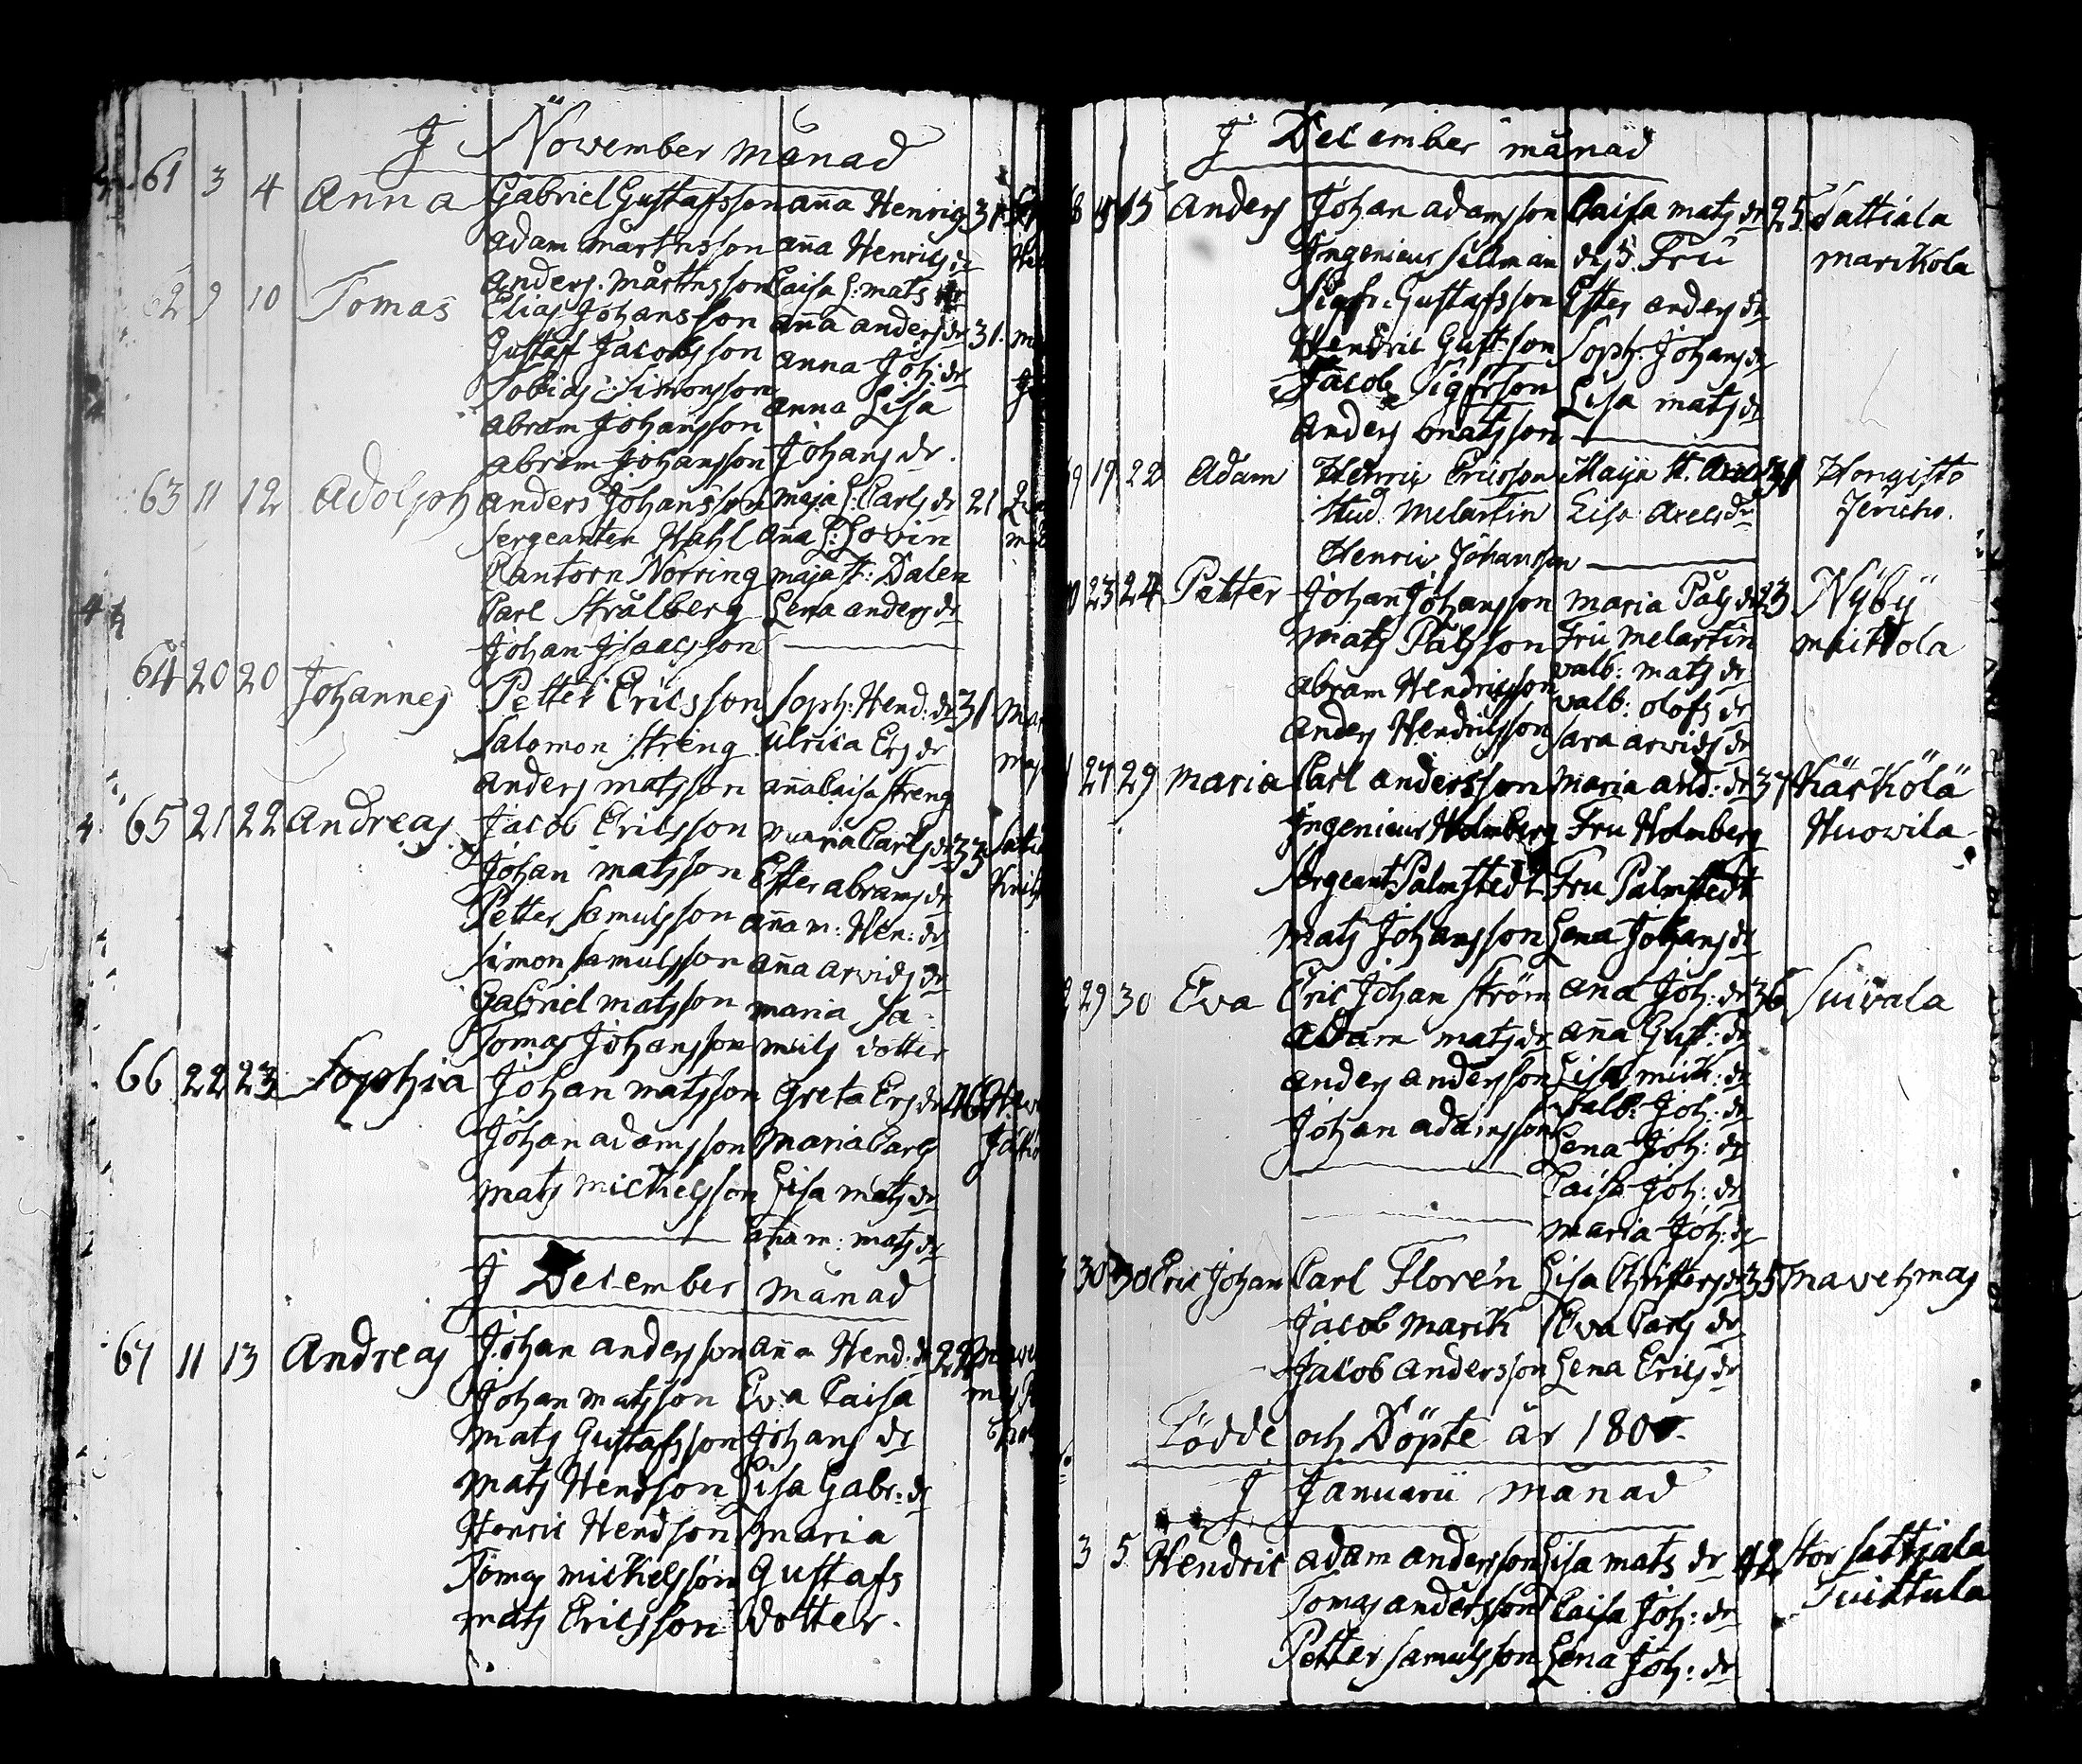 I November månad
61 3 4 Anna Gabriel Gustafsson aña Henrigs 31
Adam Mårtensson aña Henrics dr
Anders Mårtensson Caisa L: mats dr
62 9 10 Tomas Elias Johansson aña anders dr 31
Gustaf Jacobsson anna Joh: dr
Tobias Simonsson anna Lisa
Abram Johansson
abram Johansson Johans dr.
63 11 12 Adolph anders Johansson maja L: Carls dr 21
Sergeanten Hahl Aña L: Lovin
Cantorn Norring maja St: Dalen
Carl Strålberg Lena anders dr
Johan Isaacsson
64 20 20 Johannes Petter Ericsson Soph: Hend: dr 31
Salomon Streng Ulrica Ers dr
anders matsson aña Caisa Streng
65 21 22 Andreas Jacob Ericsson maria Carls dr 33
Johan matsson Ester abrams dr
Petter Samulsson aña m: Hen: dr
Simon Samulsson aña arvids dr
Gabriel matsson maria Sa-
Tomas Johansson muils dotter
66 22 23 Sophia Johan matsson Greta Ers dr 46
Johan adamsson Maria Carls
mats Mickelsson Lisa mats dr
aña m: mats dr
I December månad
67 11 13 Andreas Johan andersson aña Hend: dr 22
Johan matsson Eva Caisa
Mats Gustafsson Johans dr
Mats Hendson Lisa Gabr: dr
Henric Hendson Maria
Tomas mickelsson Gustafs
mats Ericsson Dotter.
I December månad
8 13 15 Anders Johan adamsson Caisa mats dr 25 Sattiala
Ingenieur Sillman des Fru marickola
Sigfr: Gustafsson Ester anders dr
Hendric Gust:son Soph: Johans dr
Jacob Sigfrson Lisa mats dr
Anders matsson
9 19 22 Adam Henric Ericsson Maija St. 31 Hongisto
Stud. Melartin Lisa Axels dr Jericho.
Henric Johansson
0 23 24 Petter Johan Johansson Maria Påls dr 23 Nyby
Mats Pålsson Fru Melartin
Abram Hendricsson valb: mats dr
Anders Hendricsson valb: olofs dr
Sara arvids dr
27 29 Maria Carl andersson Maria and: dr 37 Kärkölä
Ingenieur Holmberg Fru Holmberg Huovila
Sergeant Palmstedt Fru Palmstedt
Mats Johansson Lena Johans dr
29 30 Eva Eric Johan Ström ana Joh: dr 36 Suivala
adam mats dr aña Gust: dr
anders andersson Lisa mick: dr
Valb: Joh: dr
Johan adamsson Lena Joh: dr
Caisa Joh: dr
maria Joh: dr
30 30 Eric Johan Carl Florén Lisa Christers dr 35 Mavehmas
Jacob Marck Eva Carls dr
Jacob Andersson Lena Erics dr
Födde och Döpte år 1800.
I Januarii månad
3 5 Hendric adam andersson Lisa mats dr 42 Stor Sattiala
Tomas andersson Caisa Joh: dr Tuittula
Petter Samulsson Lena Joh: dr